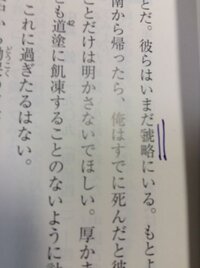 とだ。彼らはいまだ虢略にいる。もとよ
南から帰ったら、俺はすでに死んだと彼
ことだけは明かさないでほしい。厚かま
42
とも道塗に飢凍することのないように
これに過ぎたるはない。
どうこく